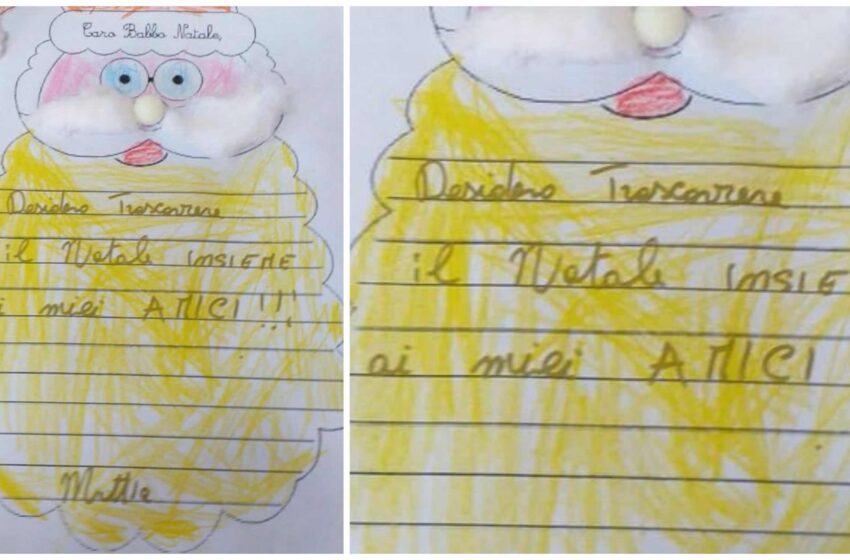 Caro Babbo Natale,
Desidero Trascorrere
il Natale INSIEME
i miei AMICI!!!
Mattia
Desidero Trascorrere
il Natale INSIE
ai miei AMICI